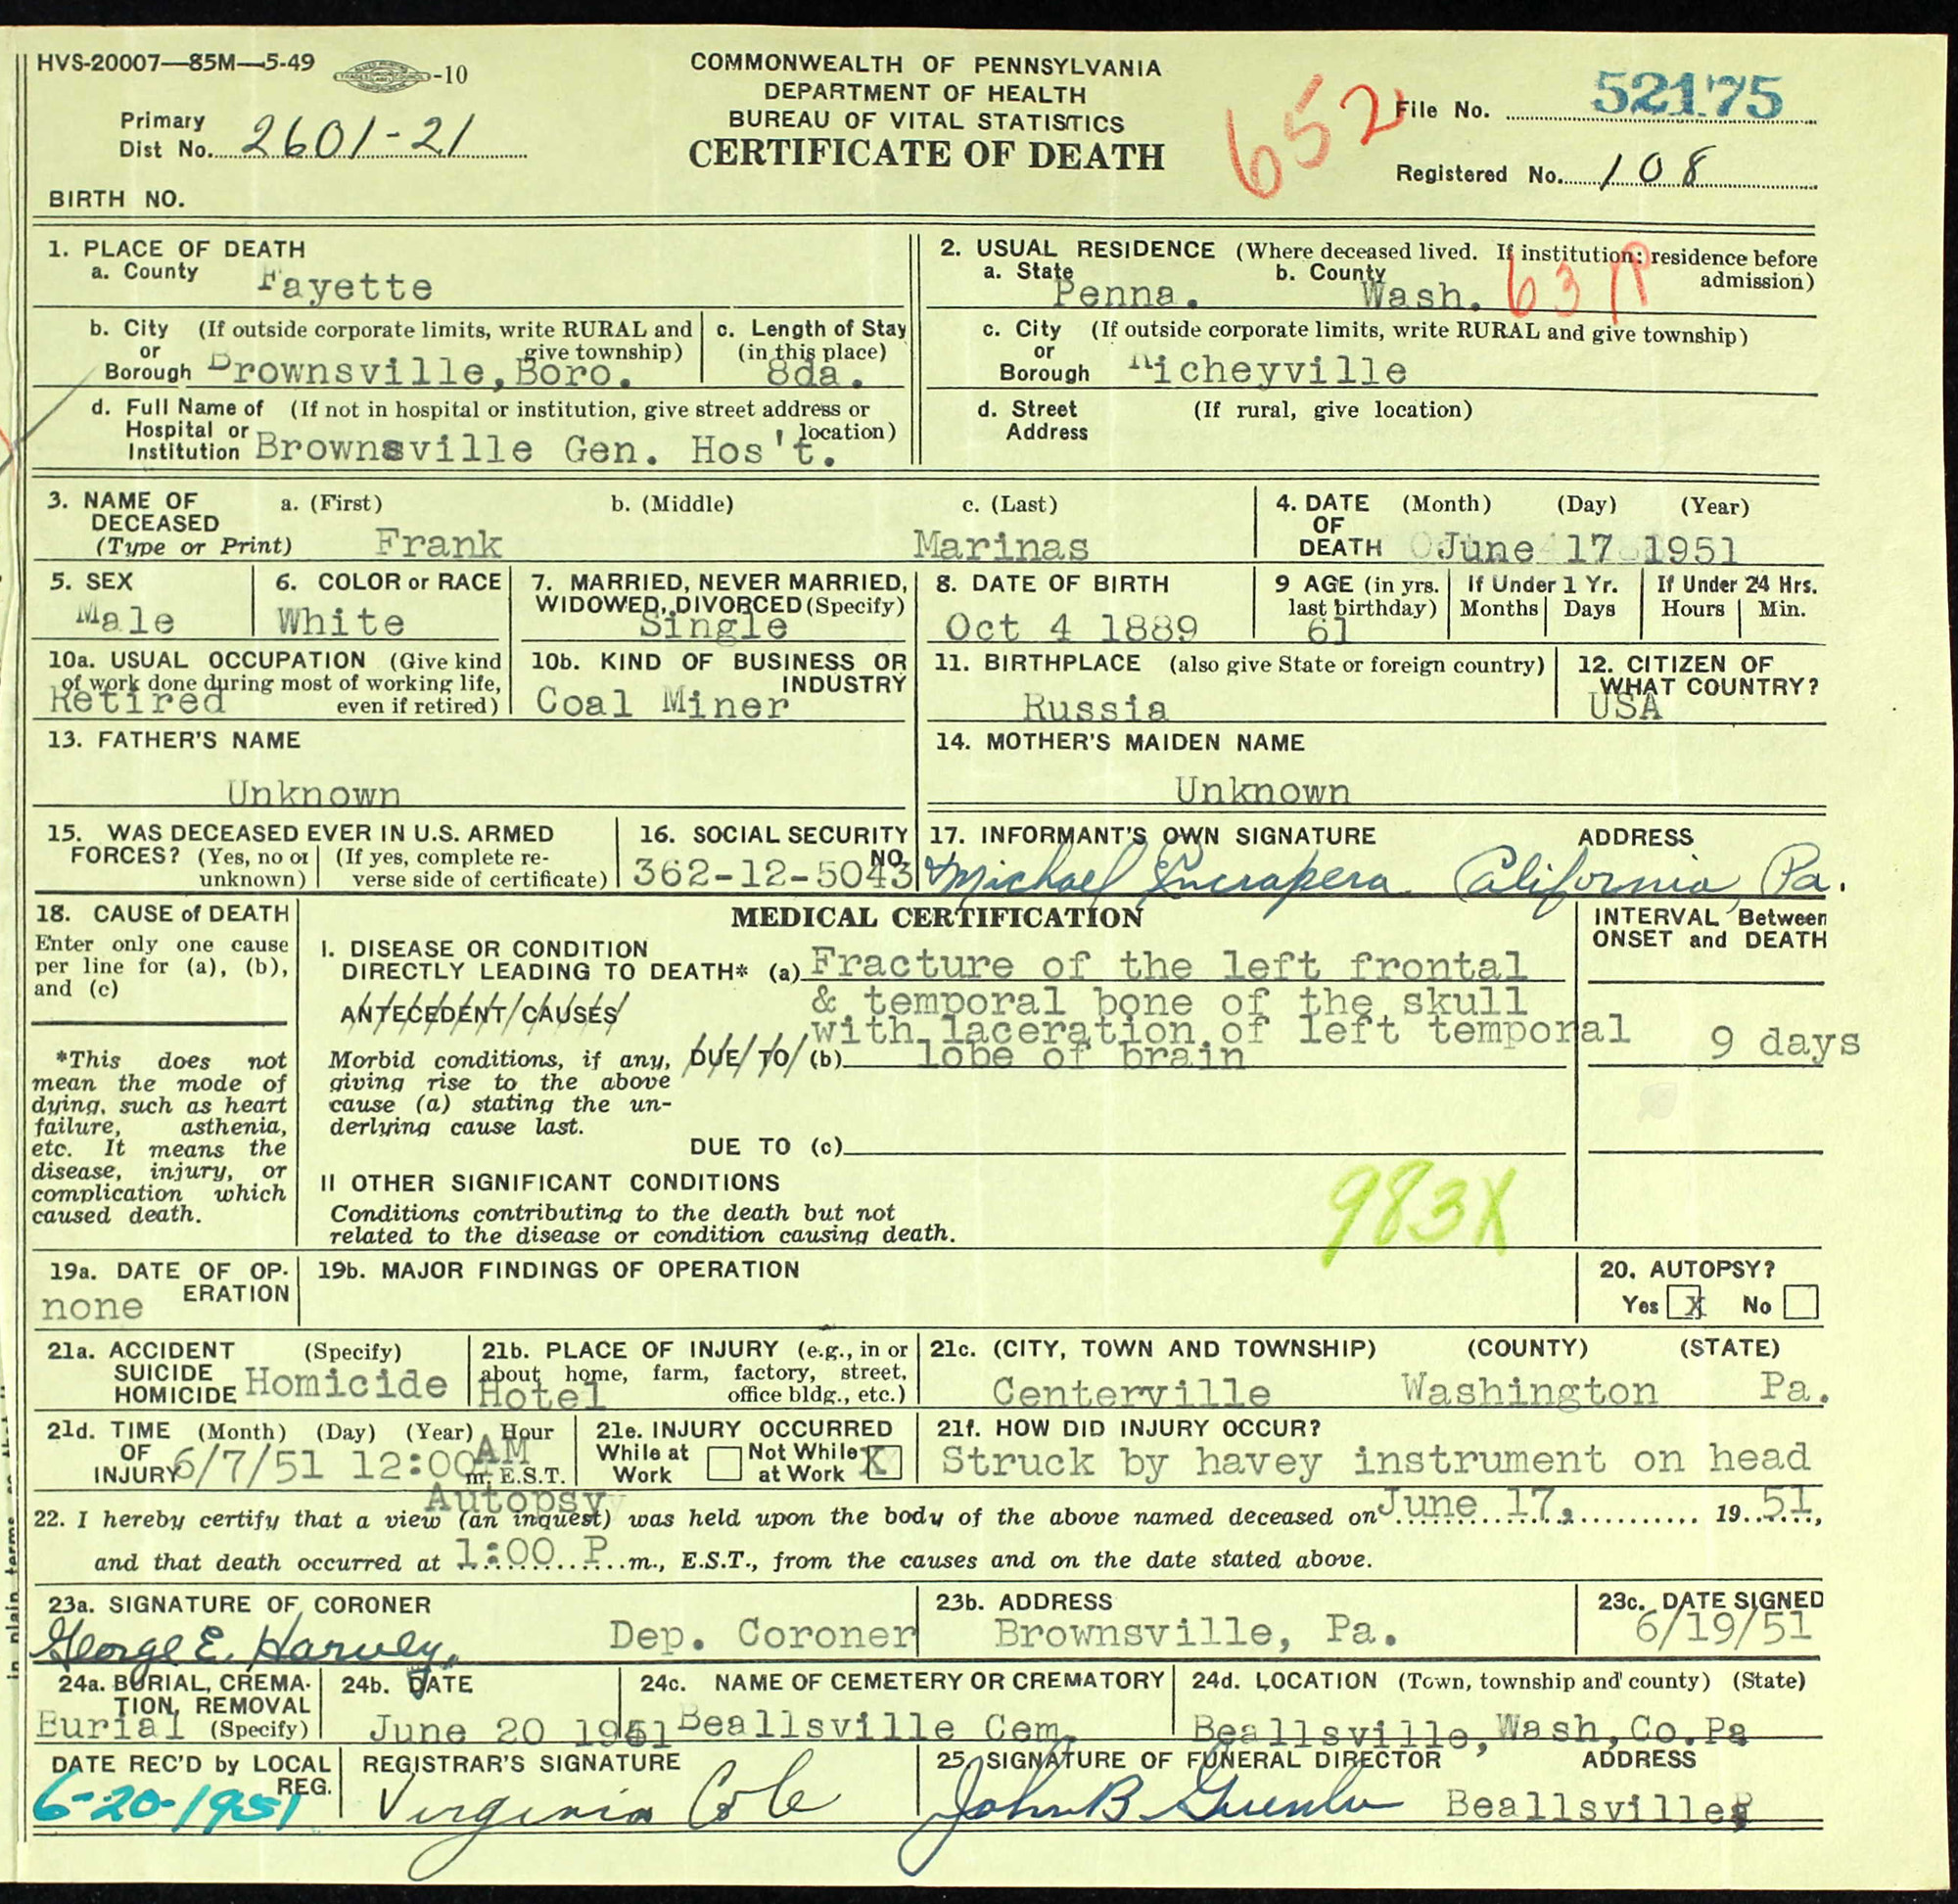 HVS-20007—85M—5-49 -10
COMMONWEALTH OF PENNSYLVANIA
DEPARTMENT OF HEALTH
BUREAU OF VITAL STATISTICS
CERTIFICATE OF DEATH
652
File No. 52175
Primary
Dist No. 2601-21
Registered No. 108
BIRTH NO.
1. PLACE OF DEATH
a. County Fayette
2. USUAL RESIDENCE (Where deceased lived. If institution: residence before admission)
a. State Penna. b. County Wash. 63
b. City or Borough (If outside corporate limits, write RURAL and give township) Brownsville,Boro.
c. Length of Stay (in this place) 8da.
c. City or Borough (If outside corporate limits, write RURAL and give township) Richeyville
d. Full Name of Hospital or Institution (If not in hospital or institution, give street address or location) Brownsville Gen. Hos't.
d. Street Address (If rural, give location)
3. NAME OF DECEASED (Type or Print) a. (First) b. (Middle) c. (Last)
Frank Marinas
4. DATE OF DEATH (Month) (Day) (Year)
June 17 1951
5. SEX
Male
6. COLOR or RACE
White
7. MARRIED, NEVER MARRIED, WIDOWED, DIVORCED (Specify)
Single
8. DATE OF BIRTH
Oct 4 1889
9 AGE (in yrs. last birthday) If Under 1 Yr. Months Days If Under 24 Hrs. Hours Min.
61
10a. USUAL OCCUPATION (Give kind of work done during most of working life, even if retired)
Retired
10b. KIND OF BUSINESS OR INDUSTRY
Coal Miner
11. BIRTHPLACE (also give State or foreign country)
Russia
12. CITIZEN OF WHAT COUNTRY?
USA
13. FATHER'S NAME
Unknown
14. MOTHER'S MAIDEN NAME
Unknown
15. WAS DECEASED EVER IN U.S. ARMED FORCES? (Yes, no or unknown) (If yes, complete reverse side of certificate)
16. SOCIAL SECURITY NO.
362-12-5043
17. INFORMANT'S OWN SIGNATURE ADDRESS
Michael California, Pa.
18. CAUSE of DEATH
Enter only one cause
per line for (a), (b),
and (c)
*This does not
mean the mode of
dying, such as heart
failure, asthenia,
etc. It means the
disease, injury, or
complication which
caused death.
MEDICAL CERTIFICATION
INTERVAL Between
ONSET and DEATH
I. DISEASE OR CONDITION
DIRECTLY LEADING TO DEATH* (a) Fracture of the left frontal
ANTECEDENT CAUSES & temporal bone of the skull
with laceration of left temporal
Morbid conditions, if any, DUE TO (b) lobe of brain
9 days
giving rise to the above
cause (a) stating the un-
derlying cause last.
DUE TO (c)
II OTHER SIGNIFICANT CONDITIONS
Conditions contributing to the death but not
related to the disease or condition causing death.
983X
19a. DATE OF OPERATION
none
19b. MAJOR FINDINGS OF OPERATION
20. AUTOPSY?
Yes X No
21a. ACCIDENT SUICIDE HOMICIDE (Specify)
Homicide
21b. PLACE OF INJURY (e.g., in or about home, farm, factory, street, office bldg., etc.)
Hotel
21c. (CITY, TOWN AND TOWNSHIP) (COUNTY) (STATE)
Centerville Washington Pa.
21d. TIME OF INJURY (Month) (Day) (Year) Hour
6/7/51 12:00 AM m. E.S.T.
21e. INJURY OCCURRED
While at Work Not While at Work X
21f. HOW DID INJURY OCCUR?
Struck by havey instrument on head
Autopsy
22. I hereby certify that a view (an inquest) was held upon the body of the above named deceased on June 17, 19 51,
and that death occurred at 1:00 P m., E.S.T., from the causes and on the date stated above.
23a. SIGNATURE OF CORONER
George E. Harvey, Dep. Coroner
23b. ADDRESS
Brownsville, Pa.
23c. DATE SIGNED
6/19/51
24a. BURIAL, CREMATION, REMOVAL (Specify)
Burial
24b. DATE
June 20 1951
24c. NAME OF CEMETERY OR CREMATORY
Beallsville Cem.
24d. LOCATION (Town, township and county) (State)
Beallsville, Wash,Co.Pa
DATE REC'D by LOCAL REG.
6-20-1951
REGISTRAR'S SIGNATURE
Virginia Cole
25. SIGNATURE OF FUNERAL DIRECTOR ADDRESS
John B Beallsville
in plain terms